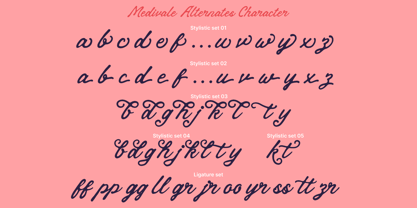 Medivale Alternates Character
Stylistic set 01
a b c d e f ... u v w y x z
Stylistic set 02
a b c d e f ... u v w y x z
Stylistic set 03
b d g h j k l t y
Stylistic set 04 Stylistic set 05
b d g h j k l t y k t
Ligature set
ff pp gg ll gr jr oo yr ss tt zr